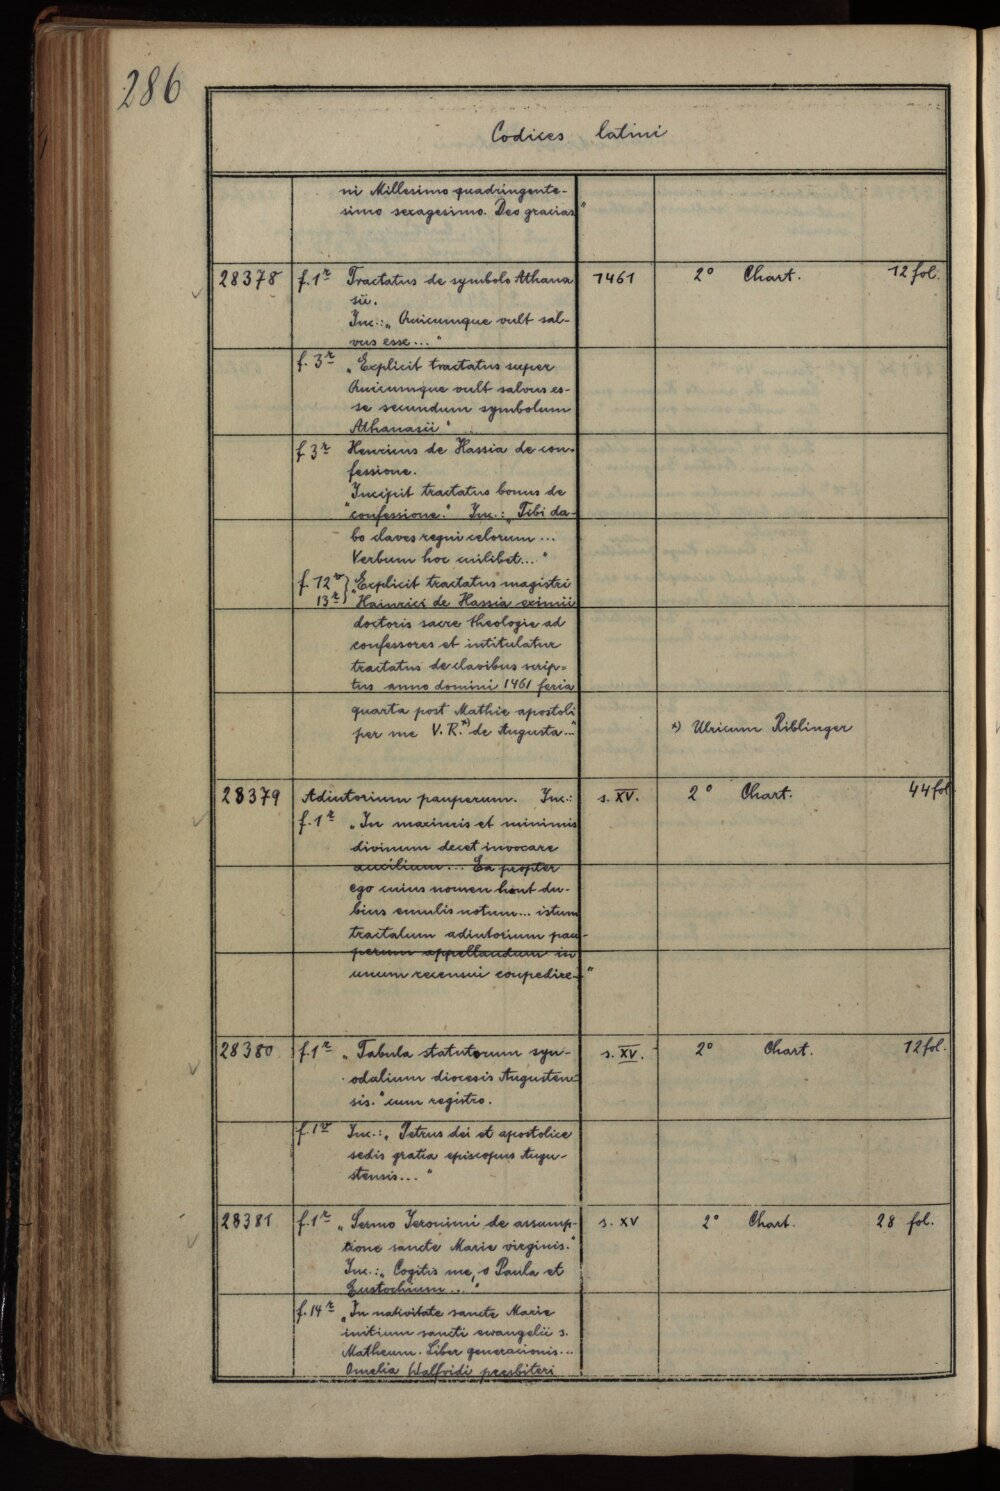 286
Codices latini
ni Millesimo quadringente-
simo sexagesimo. Deo gracias"
28378 f. 1r Tractatus de symbolo Athana 1461 2° Chart. 12 fol.
sii.
Inc.: „Quicumque vult sal-
vus esse..."
f. 3r „Explicit tractatus super
Quicumque vult salvus es-
se secundum symbolum
Athanasii"
f 3r Henricus de Hassia de con-
fessione.
„Incipit tractatus bonus de
confessione." Inc.: „Tibi da-
bo claves regni celorum...
Verbum hoc cuilibet..."
f. 12v } „Explicit tractatus magistri
13r } Hainrici de Hassia eximii
doctoris sacre theologie ad
confessores et intitulatur
tractatus de clavibus scrip=
tus anno domini 1461 feria
quarta post Mathie apostoli
per me V. R.x) de Augusta..." x) Ulricum Riblinger
28379 Adiutorium pauperum. Inc.: s. XV. 2° Chart. 44 fol
f. 1r „In maximis et minimis
divinum decet invocare
auxilium... Ea propter
ego cuius nomen haut du-
bius emulis notum... istum
tractatum adiutorium pau-
perum appellandum in
unum recensui conpedire-"
28380 f. 1r „Tabula statutorum syn- s. XV. 2° Chart. 12 fol.
odalium diocesis Augusten-
sis." cum registro.
f. 1v Inc.: „Petrus dei et apostolice
sedis gratia episcopus Augu-
stensis..."
28381 f. 1r „Sermo Jeronimi de assump- s. XV 2° Chart. 28 fol.
tione sancte Marie virginis."
Inc.: „Cogitis me, o Paula et
Eustochium..."
f. 14r „In nativitate sancte Marie
initium sancti ewangelii s.
Matheum. Liber generacionis...
Omelia Walfridi presbiteri